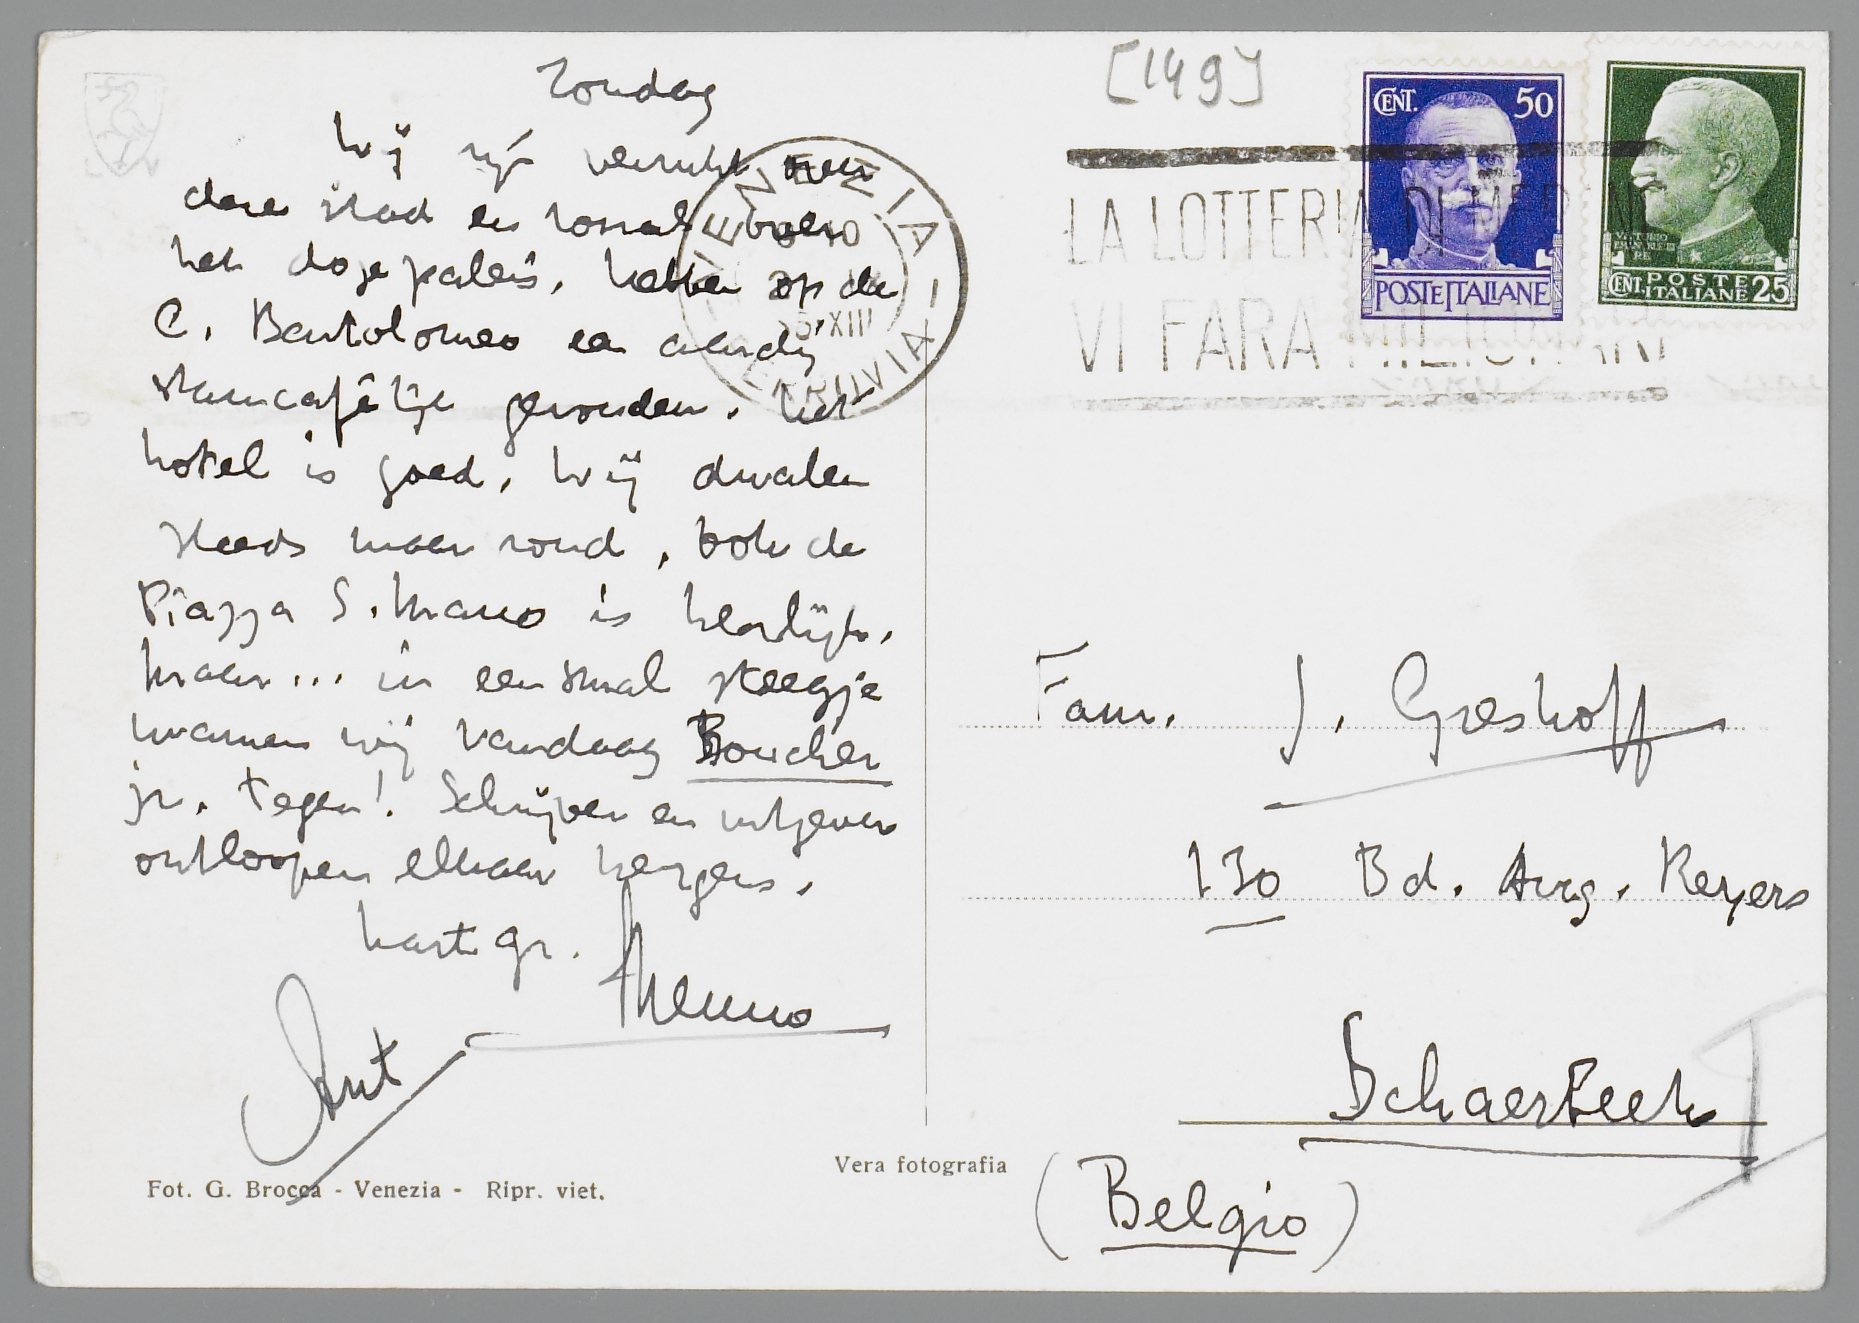 Zondag
Wij zijn verrukt over
deze stad en vooral over
het dogepaleis, hebben op de
C. Bartolomeo een aardig
stamcafé'tje gevonden. Het
hotel is goed. Wij dwalen
steeds maar rond, ook de
Piazza S. Marco is heerlijk.
Maar... in een smal steegje
kwamen wij vandaag Boucher
jr. tegen! Schrijver en uitgever
ontloopen elkaar nergens.
hart. gr. Menno
Ant
Fot. G. Brocca - Venezia - Ripr. viet.
Vera fotografia
[149]
VENEZIA
XIII
FERROVIA
LA LOTTERIA DI MERANO
VI FARÀ MILIONARI
CENT. 50
POSTE ITALIANE
VITTORIO
EMANUELE III
RE
CENT. POSTE ITALIANE 25
Fam. J. Greshoff
130 Bd. Aug. Reyers
Schaerbeek
(Belgio)
I